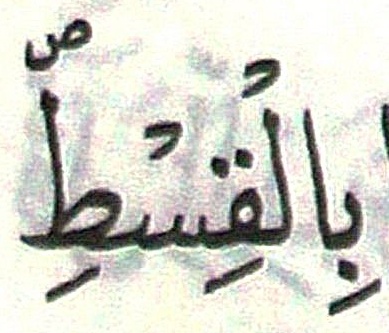 بِالْقِسْطِ ۖ ص